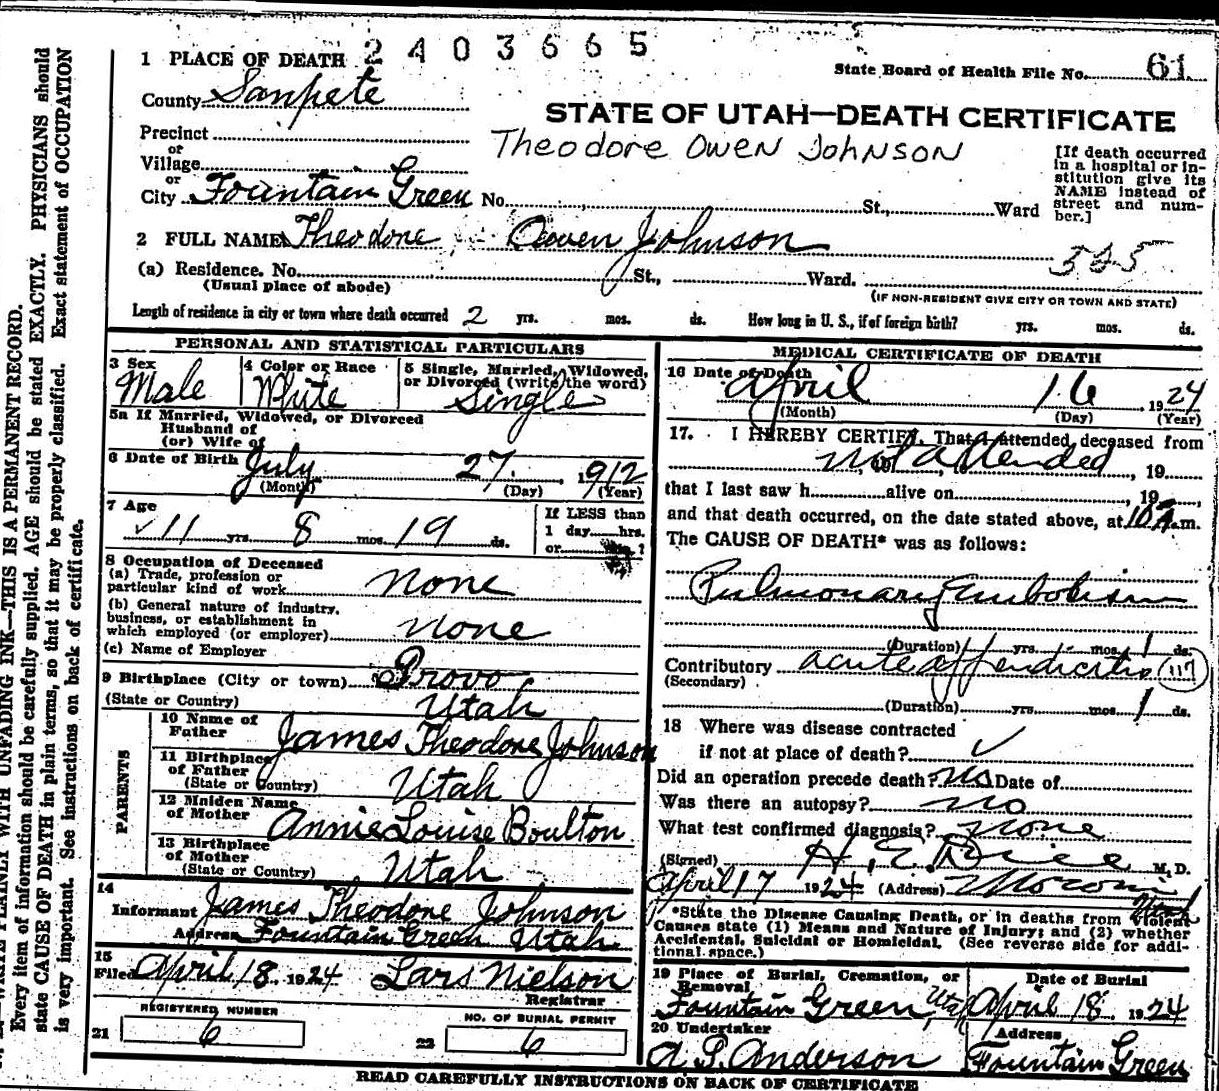 2403665
1 PLACE OF DEATH
State Board of Health File No. 61
County Sanpete
STATE OF UTAH—DEATH CERTIFICATE
Precinct
Theodore Owen Johnson
or
Village
or
City Fountain Green No. St., Ward
[If death occurred
in a hospital or in-
stitution give its
NAME instead of
street and num-
ber.]
2 FULL NAME Theodore Owen Johnson
525
(a) Residence. No. St., Ward.
(Usual place of abode)
(IF NON-RESIDENT GIVE CITY OR TOWN AND STATE)
Length of residence in city or town where death occurred 2 yrs. mos. ds. How long in U. S., if of foreign birth? yrs. mos. ds.
PERSONAL AND STATISTICAL PARTICULARS
3 Sex
Male
4 Color or Race
White
5 Single, Married, Widowed,
or Divorced (write the word)
Single
5a If Married, Widowed, or Divorced
Husband of
(or) Wife of
6 Date of Birth July 27 1912
(Month) (Day) (Year)
7 Age
11 yrs. 8 mos. 19 ds.
If LESS than
1 day hrs.
or min.?
8 Occupation of Deceased
(a) Trade, profession or
particular kind of work none
(b) General nature of industry,
business, or establishment in
which employed (or employer) none
(c) Name of Employer
9 Birthplace (City or town) Provo
(State or Country) Utah
PARENTS
10 Name of
Father James Theodore Johnson
11 Birthplace
of Father
(State or Country) Utah
12 Maiden Name
of Mother Annie Louise Boulton
13 Birthplace
of Mother
(State or Country) Utah
14
Informant James Theodore Johnson
Address Fountain Green Utah
15
Filed April 18. 1924 Lars Nielson
Registrar
REGISTERED NUMBER
21 6
NO. OF BURIAL PERMIT
22 6
MEDICAL CERTIFICATE OF DEATH
16 Date of Death
April 16, 1924
(Month) (Day) (Year)
17. I HEREBY CERTIFY, That I attended deceased from
not attended, 19
that I last saw h alive on, 19
and that death occurred, on the date stated above, at 10 A.m.
The CAUSE OF DEATH* was as follows:
Pulmonary Embolism
(Duration) yrs. mos. 1 ds.
Contributory acute appendicitis 117
(Secondary)
(Duration) yrs. mos. 1 ds.
18 Where was disease contracted
if not at place of death? ✓
Did an operation precede death? No Date of
Was there an autopsy? no
What test confirmed diagnosis? none
(Signed) H. E. Rice M. D.
April 17 1924 (Address) Moroni
Utah
*State the Disease Causing Death, or in deaths from Violent
Causes state (1) Means and Nature of Injury; and (2) whether
Accidental, Suicidal or Homicidal. (See reverse side for addi-
tional space.)
19 Place of Burial, Cremation, or
Removal
Fountain Green, Utah
Date of Burial
April 18 1924
20 Undertaker
A P. Anderson
Address
Fountain Green
READ CAREFULLY INSTRUCTIONS ON BACK OF CERTIFICATE
WRITE PLAINLY WITH UNFADING INK—THIS IS A PERMANENT RECORD.
Every item of information should be carefully supplied. AGE should be stated EXACTLY. PHYSICIANS should
state CAUSE OF DEATH in plain terms, so that it may be properly classified. Exact statement of OCCUPATION
is very important. See instructions on back of certificate.